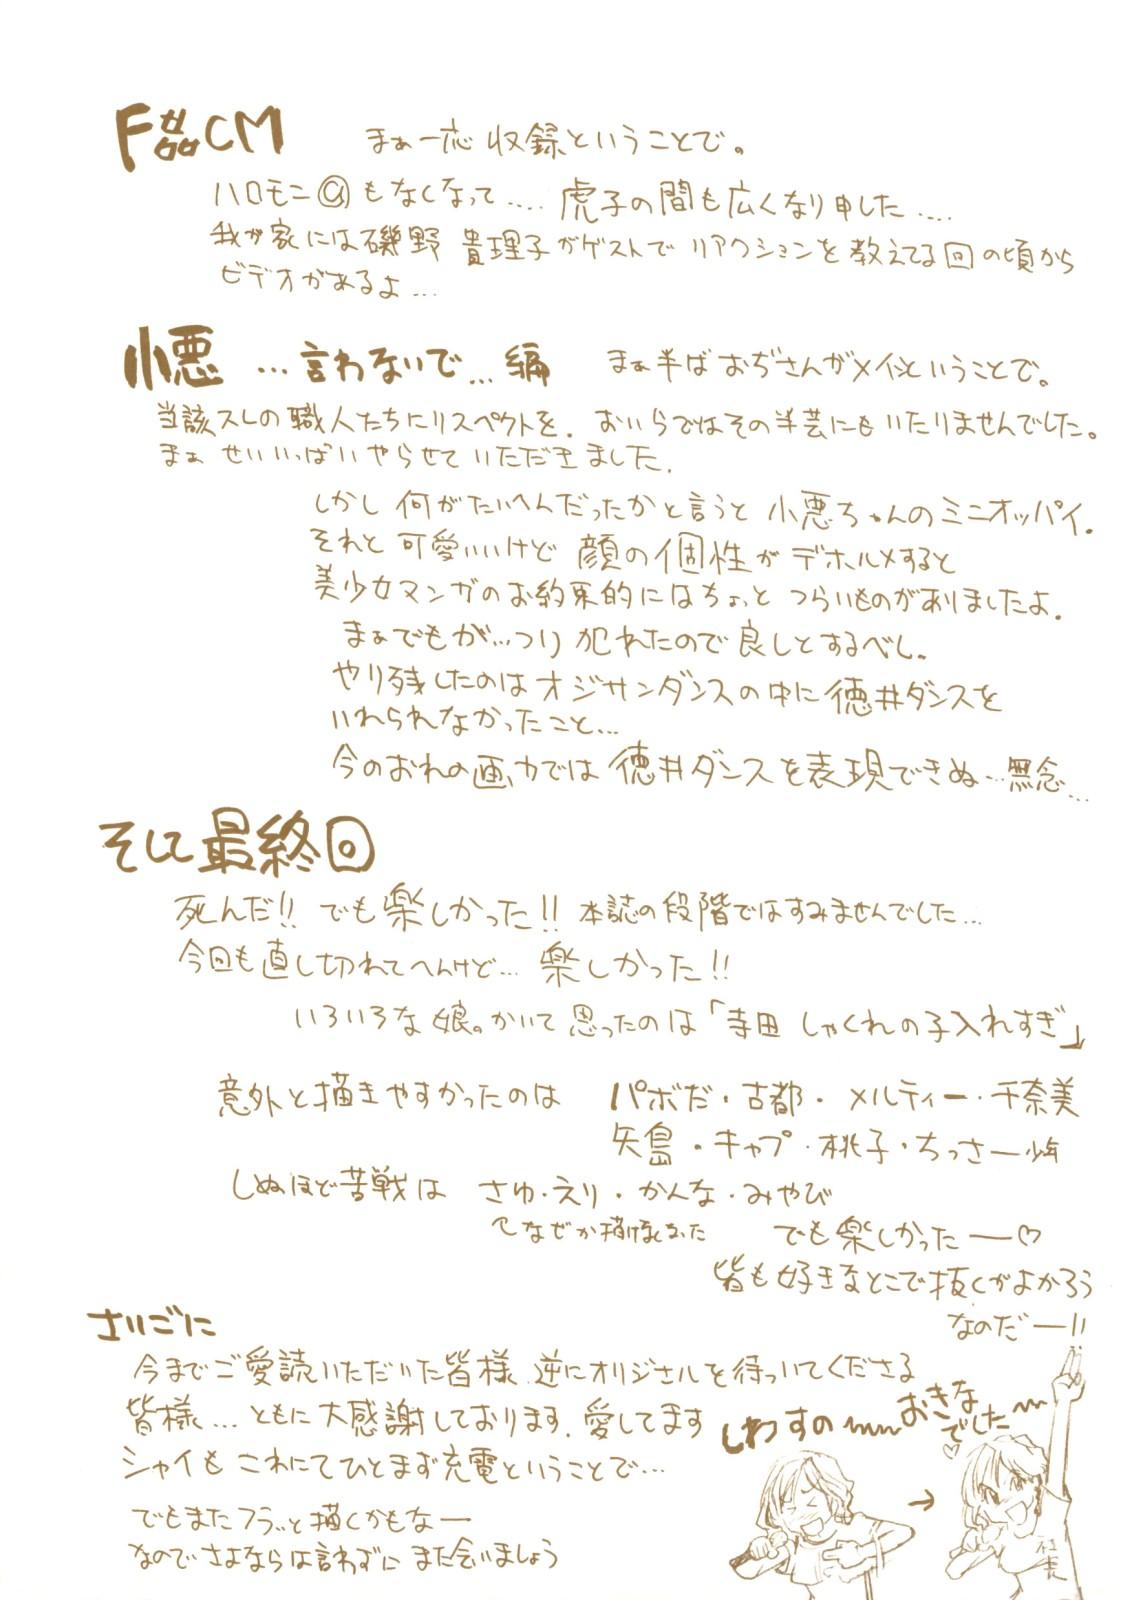 F嬲CM まぁ一応 収録ということで。
ハロモニ@もなくなって.... 虎子の間も広くなり申した....
我が家には磯野 貴理子がゲストで リアクションを教えてる回の頃から
ビデオがあるよ...
小悪 ...言わないで... 編 まぁ半ば おぢさんがメインということで。
当該スレの職人たちにリスペクトを. おいらではその半芸にもいたりませんでした。
まぁ せいいっぱいやらせていただきました.
しかし 何がたいへんだったかと言うと 小悪ちゃんのミニオッパイ.
それと 可愛いいけど 顔の個性が デホルメすると
美少女マンガのお約束的にはちょっと つらいものがありましたよ.
まぁでもが...つり 犯れたので良しとするべし.
やり残したのはオジサンダンスの中に徳井ダンスを
いれられなかったこと...
今のおれの画力では 徳井ダンスを表現できぬ...無念...
そして最終回
死んだ!! でも楽しかった!! 本誌の段階ではすみませんでした...
今回も直し切れてへんけど... 楽しかった!!
いろいろな娘。かいて 思ったのは「寺田 しゃくれの子入れすぎ」
意外と描きやすかったのは パボだ・古都・メルティー・千奈美
矢島・キャプ・桃子・ちっさー少年
しぬほど苦戦は さゆ・えり・かんな・みやび
なぜか描けなかった でも楽しかったー♡
皆も好きなとこで抜くがよかろう
なのだー!!
さいごに
今までご愛読いただいた皆様 逆にオリジナルを待っていてくださる
皆様... ともに大感謝しております. 愛してます
シャイも これにてひとまず充電ということで...
でもまたフラっと描くかもなー
なのでさよならは言わずに また会いましょう
しわすの おきな
でした
社長